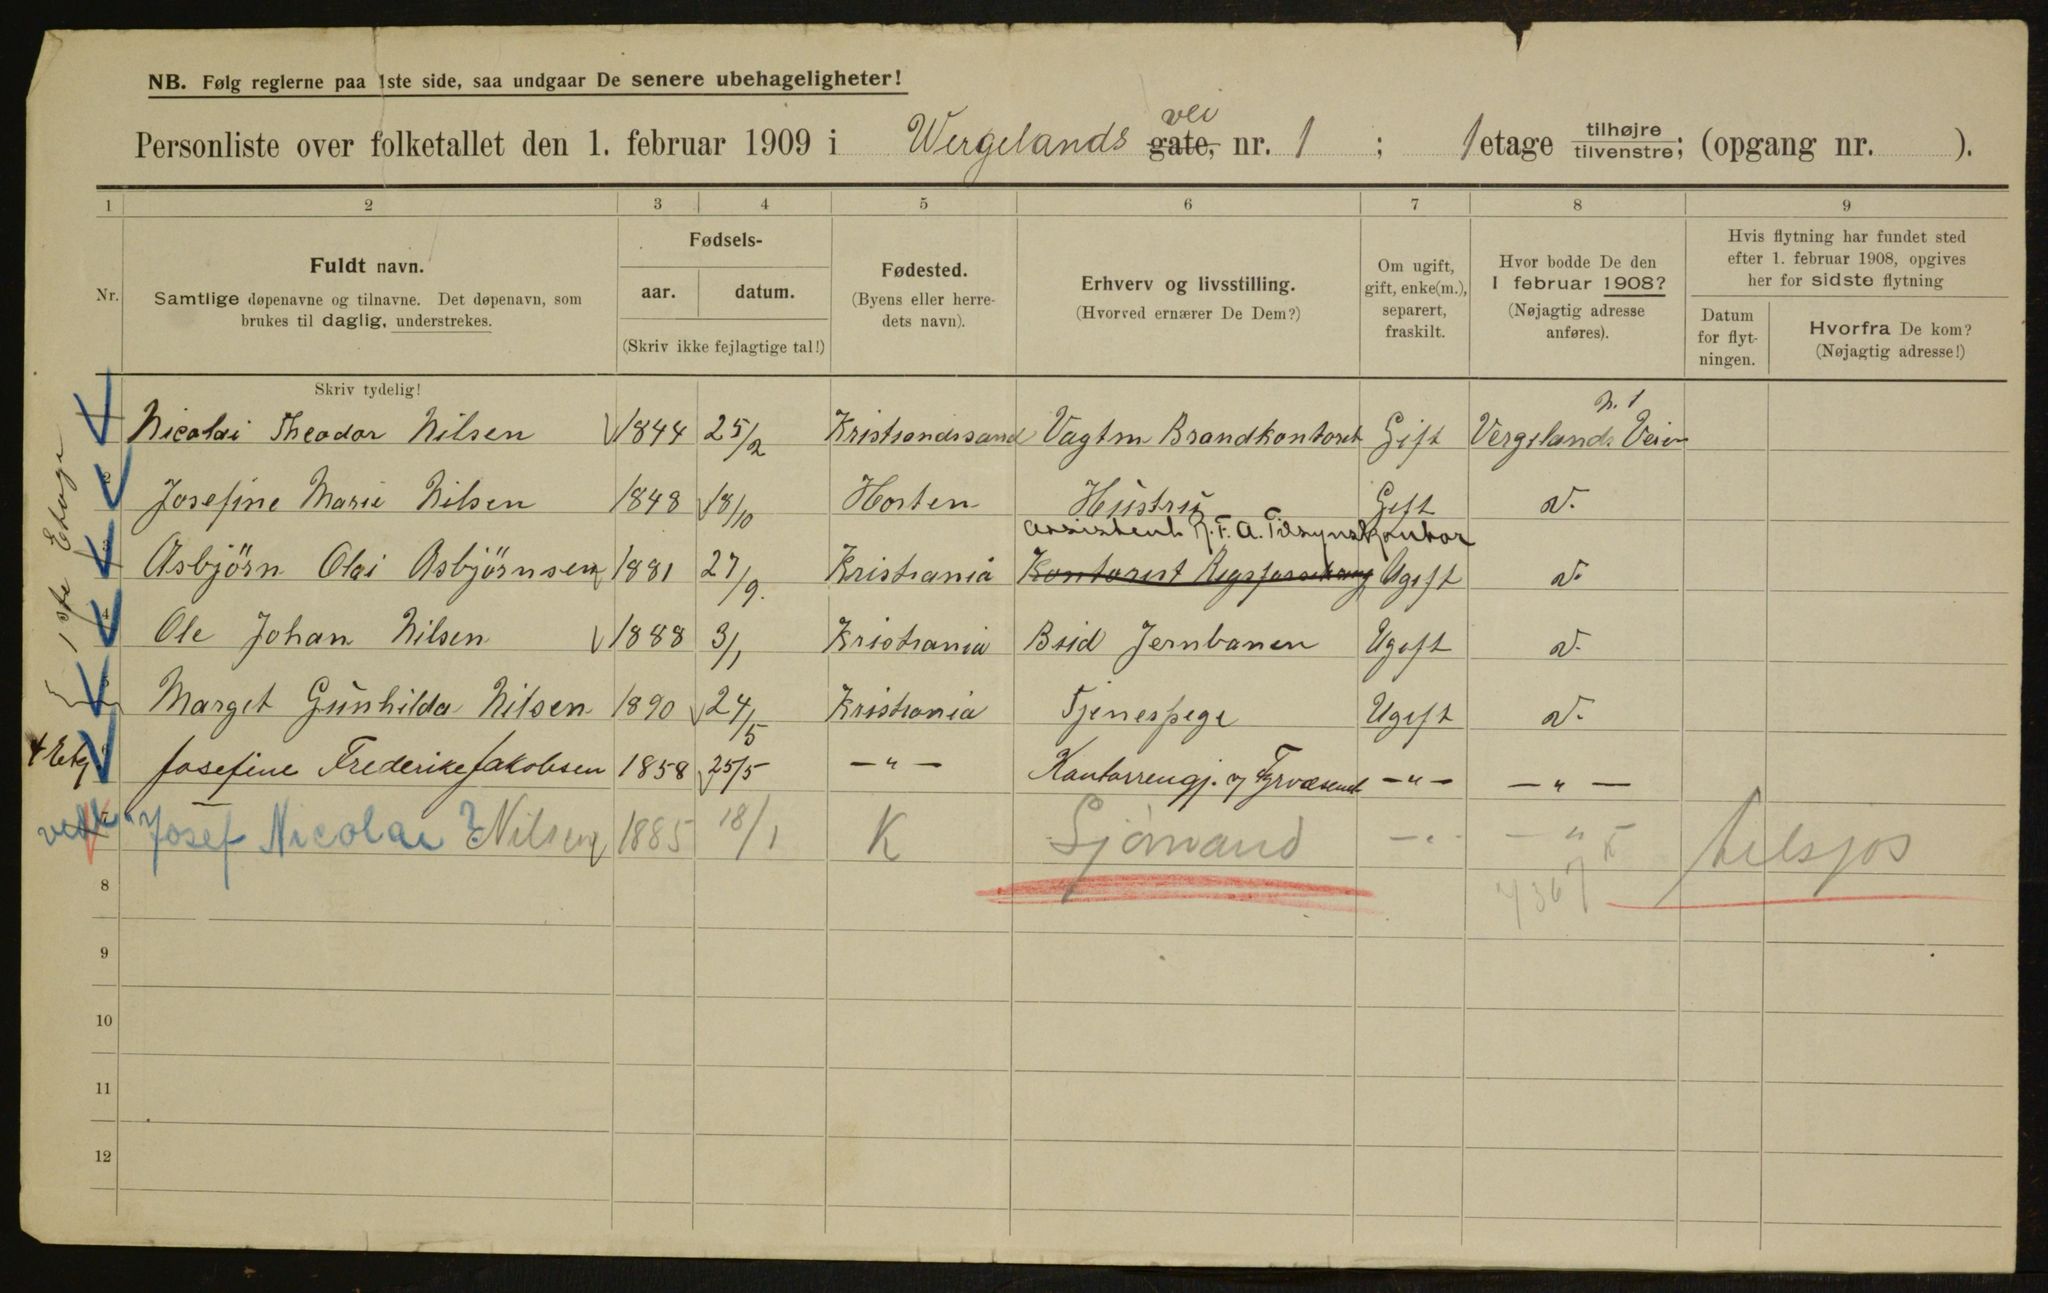 NB. Følg reglerne paa 1ste side, saa undgaar De senere ubehageligheter!
vei
Personliste over folketallet den 1. februar 1909 i Wergelands gate, nr. 1 ; 1 etage tilhøjre tilvenstre; (opgang nr. ).
1 2 3 4 5 6 7 8 9
Nr.
Fuldt navn.
Samtlige døpenavne og tilnavne. Det døpenavn, som
brukes til daglig, understrekes.
Fødsels-
aar. datum.
(Skriv ikke fejlagtige tal!)
Fødested.
(Byens eller herre-
dets navn).
Erhverv og livsstilling.
(Hvorved ernærer De Dem?)
Om ugift,
gift, enke(m.),
separert,
fraskilt.
Hvor bodde De den
1 februar 1908?
(Nøjagtig adresse
anføres).
Hvis flytning har fundet sted
efter 1. februar 1908, opgives
her for sidste flytning
Datum
for flyt-
ningen.
Hvorfra De kom?
(Nøjagtig adresse!)
Skriv tydelig!
1ste Etage
N. 1
Nicolai Theodor Nilsen 1844 25/2 Kristiandssand Vagtm Brandkontoret Gift Vergelands Veien
Josefine Marie Nilsen 1848 18/10 Horten Hustru Gift d.
Assistent R.F.A. Tilsynskontor
Asbjörn Olai Asbjörnsen 1881 27/9. Kristiania Kontorist Rigsforsikring Ugift d.
4 Ole Johan Nilsen 1888 3/1 Kristiania Bud Jernbanen Ugift d.
Marget Gunhilda Nilsen 1890 24/5 Kristiania Tjenespige Ugift d.
4 Etg. Josefine Frederike Jakobsen 1858 25/5 — " — Kontorrengj. v/ Fyrvæsenet — " — — " —
Josef Nicolai Nilsen 1885 18/1 K Sjömand — " - — " tilsjös
8
9
10
11
12